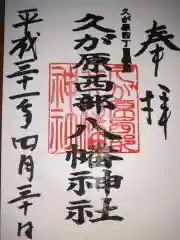 奉拝
久が原四丁目
久が原西部八幡神社
平成三十一年四月三十日